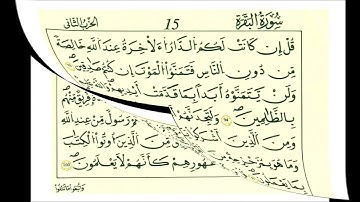 الحزب الثاني 15 سورة البقرة
قُلْ إِن كَانَتْ لَكُمُ الدَّارُ الْآخِرَةُ عِندَ اللَّهِ خَالِصَةً
مِّن دُونِ النَّاسِ فَتَمَنَّوُا الْمَوْتَ إِن كُنتُمْ صَادِقِينَ
وَلَن يَتَمَنَّوْهُ أَبَداً بِمَا قَدَّمَتْ أَيْدِيهِمْ
بِالظَّالِمِينَ وَلَتَجِدَنَّهُمْ
وَمِنَ الَّذِينَ أَشْرَكُوا رَسُولٌ مِّنْ عِندِ اللَّهِ
وَمَا هُوَ مِّنَ الَّذِينَ أُوتُوا الْكِتَابَ
ظُهُورِهِمْ كَأَنَّهُمْ لَا يَعْلَمُونَ
وَاتَّبَعُوا مَا تَتْلُوا